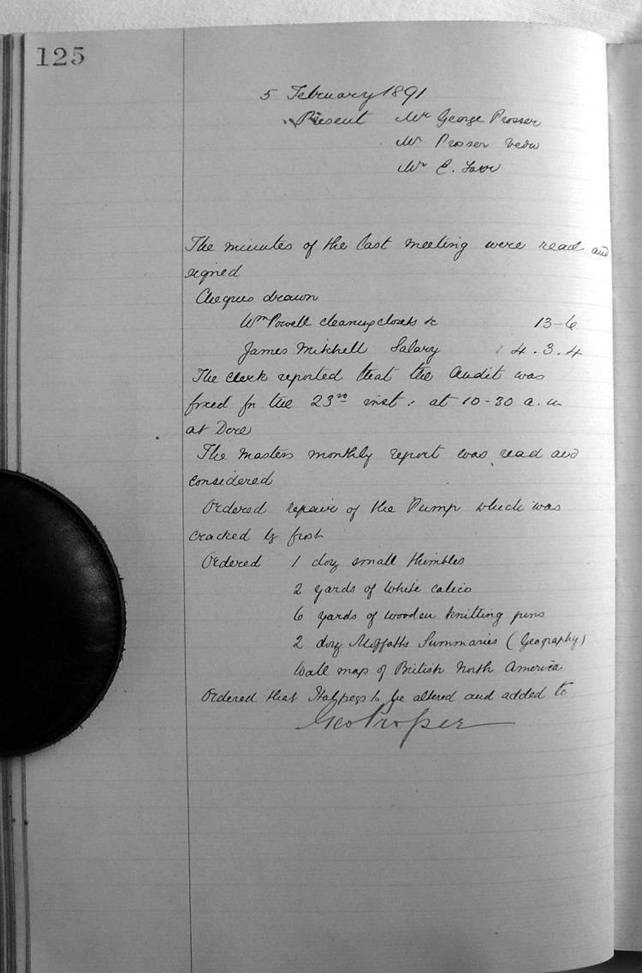 125
5 February 1891
Present Mr George Prosser
Mr Prosser Vedw
Mr E. Farr
The minutes of the last meeting were read and
signed
Cheques drawn
Wm Powell cleaning closets &c 13-6
James Mitchell Salary 4.3.4
The clerk reported that the Audit was
fixed for the 23rd inst. at 10-30 a.m
at Dore
The masters monthly report was read and
considered
Ordered repair of the Pump which was
cracked by frost
Ordered 1 doz small thimbles
2 yards of White calico
6 yards of wooden knitting pins
2 doz Moffatts Summaries (Geography)
Wall map of British North America
Ordered that to be altered and added to
Geo Prosser